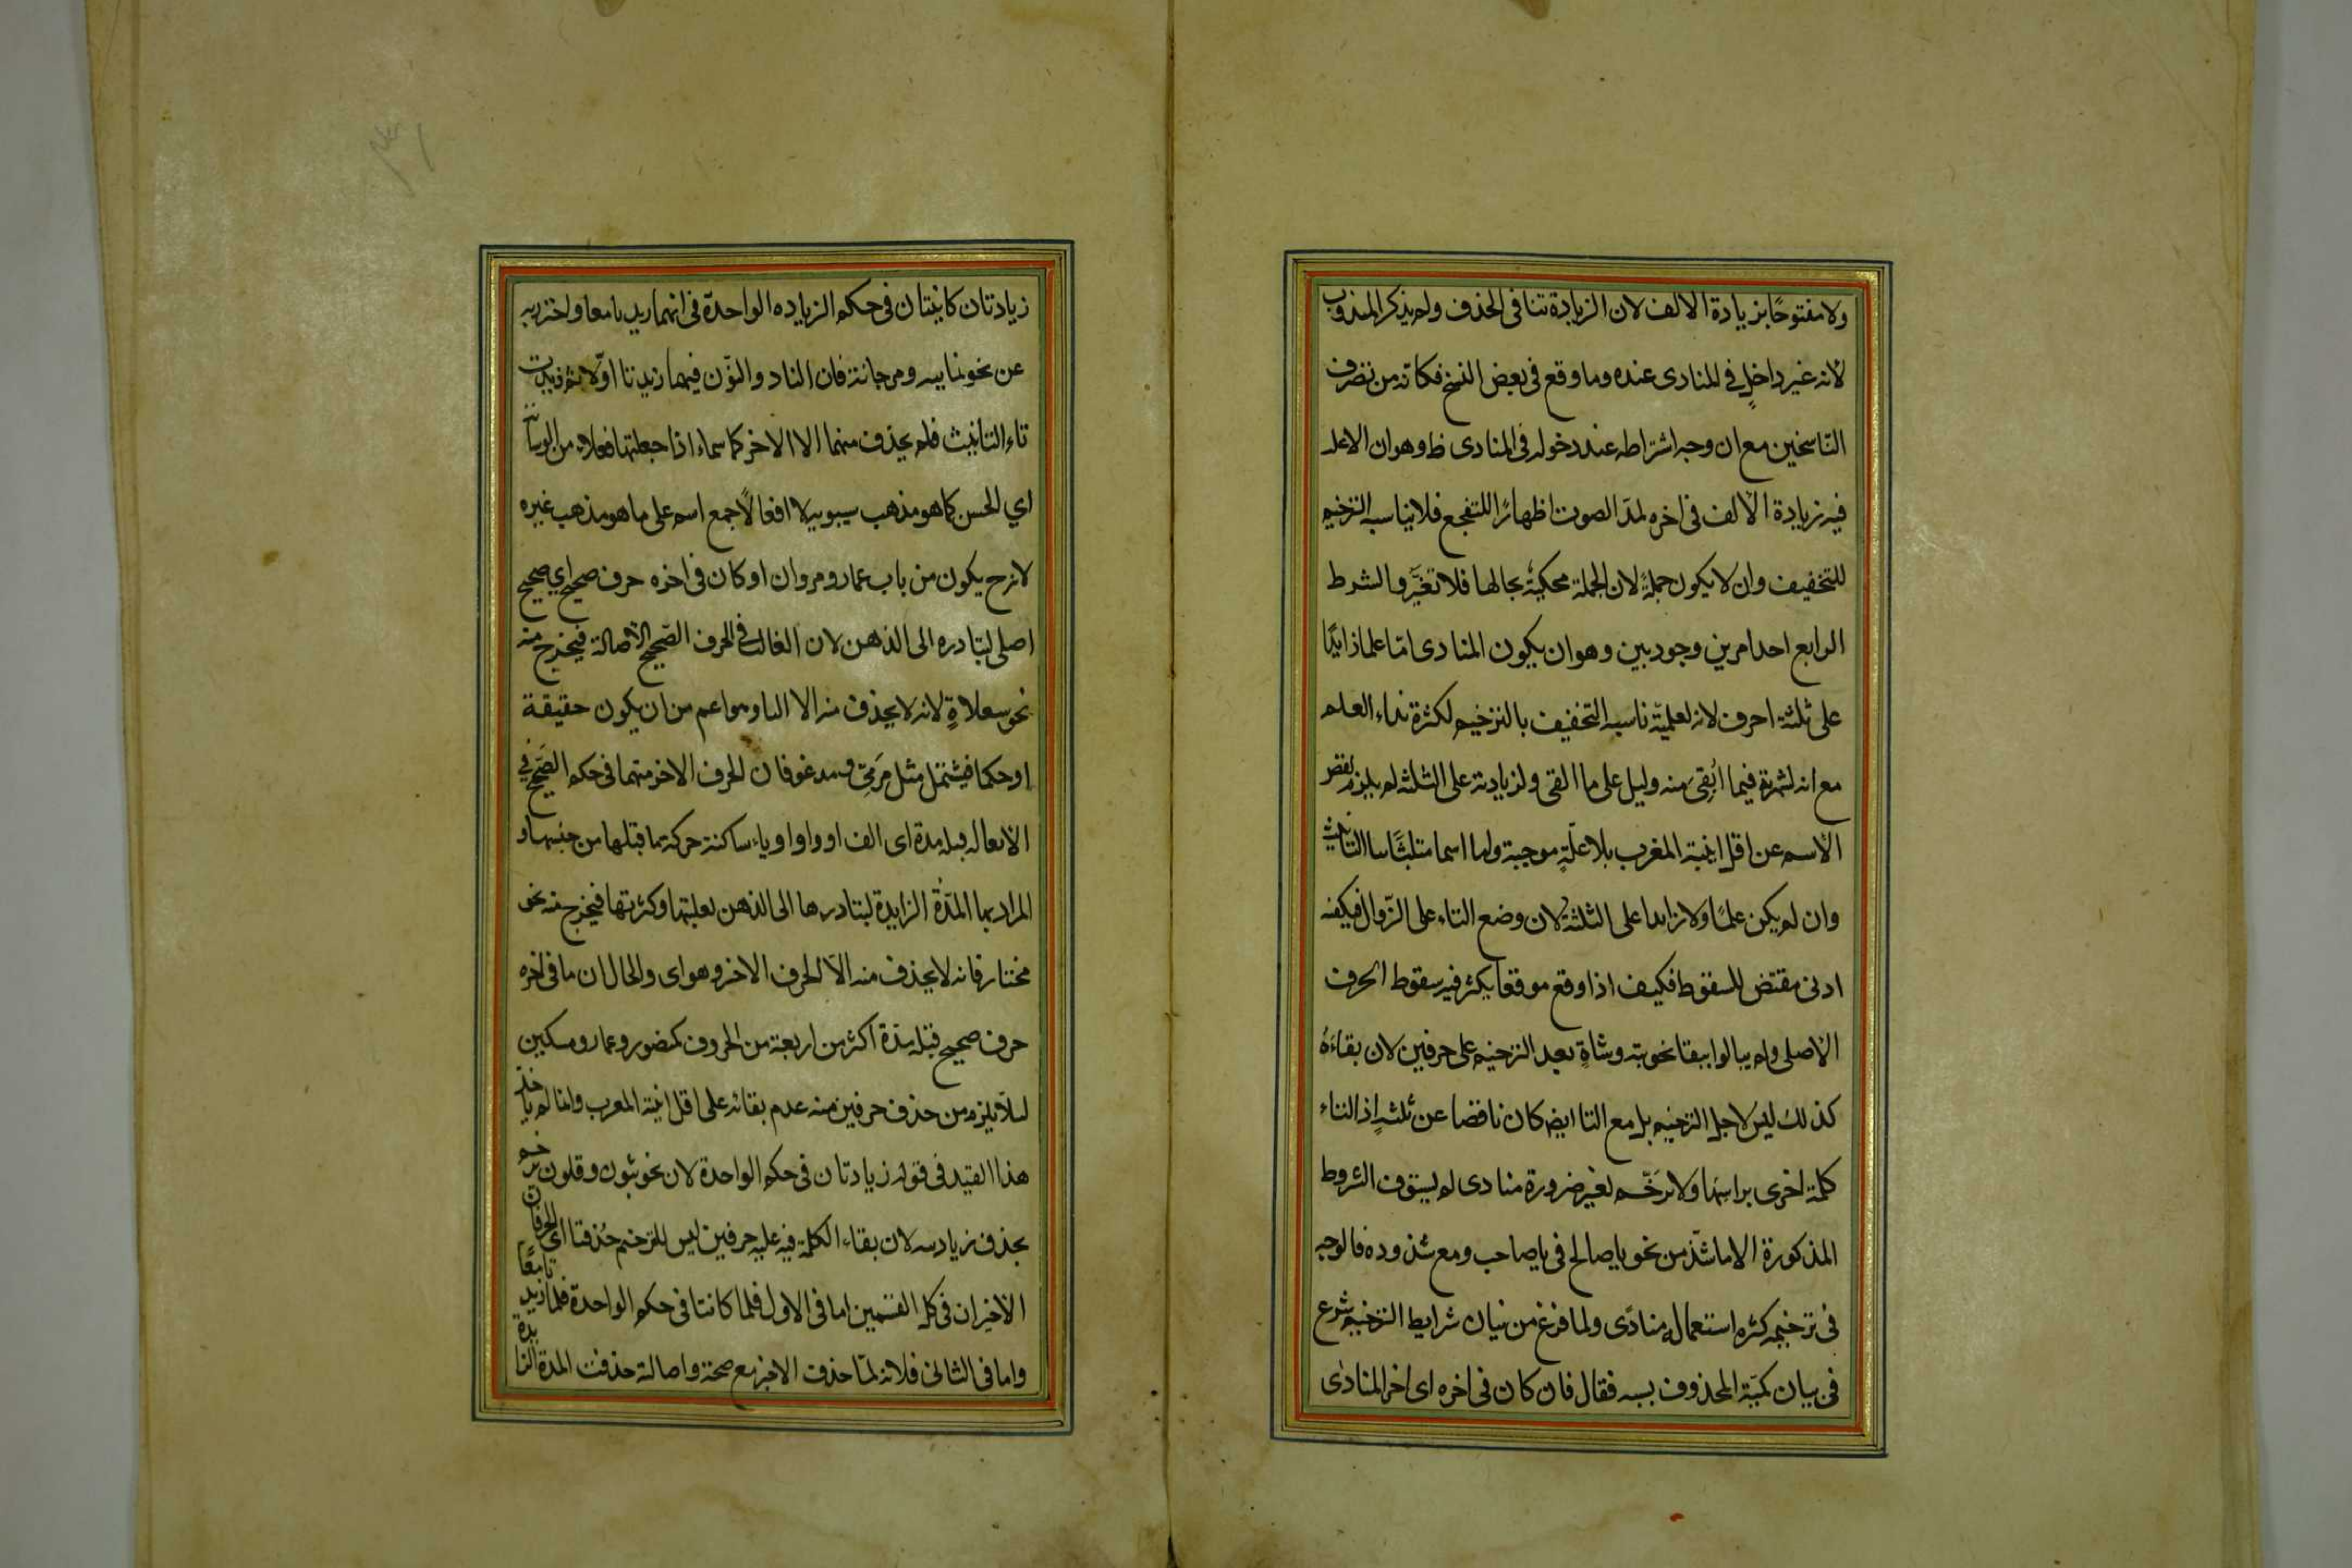 ولا مفتوحًا بزيادة الالف لان الزيادة تنافى الحذف ولم يذكر المندوب
لأنه غير داخلٍ في المنادى عنده وما وقع فى بعض النسخ فكانه من تصرف
الناسخين مع ان وجه اشتراطه عند دخوله فى المنادى ظ وهوان الاغلب
فيه زيادة الألف فى اخره لمدّ الصوت اظهارًا للتفجع فلا يناسبه الترخيم
للتخفيف وان لا يكون جملةً لان الجملة محكيةٌ بحالها فلا تغيَّر والشرط
الرابع احد امرين وجوديين وهوان يكون المنادى امّا علما زايدًا
على ثلثة احرف لانه لعلميّته ناسبه التخفيف بالترخيم لكثرة نداء العلم
مع انه لشهرته فيما ابُقِىَ منه دليل على ما القى ولزيادته على الثلثة لم يلزم نقص
الأسم عن اقل ابنية المعرب بلا علّةٍ موجبة واما اسما متلبّسًا بتاء التأنيث
وان لم يكن علمًا ولا زايدا على الثلثة لان وضع التاء على الزّوال فيكفيه
ادنى مقتض للسقوط فكيف اذا وقع موقعا يكثر فيه سقوط الحرف
الأصلى ولم يبالوا ببقاء نحو ثبة وشاةٍ بعد الترخيم على حرفين لان بقاءَهُ
كذلك ليس لاجل الترخيم بل مع التاء ايضا كان ناقصا عن ثلثةٍ اذ التاء
كلمة اخرى براسها ولا يرَخّم لغير ضرورة منادى لم يستوف الشروط
المذكورة الا ما شذّ من نحو يا صالح فى يا صاحب ومع شذوذه فالوجه
فى ترخيمه كثره استعماله منادًى ولما فرغ من بيان شرايط الترخيم شرع
فى بيان كميّة المحذوف بسببه فقال فان كان فى اخره اى اخر المنادٰى
زيادتان كاينتان فى حكم الزياده الواحدّة فى انهما زيدتا معا واحترز به
عن نحو ثمانية ومرجانة فان الياء والنّون فيهما زيدتا اوّلا ثم زيدت
تاء التانيث فلم يحذف منهما الا الاخر كاسماء اذا جعلتها فعلاء من الوسامة
اي الحسن كما هو مذهب سيبويه لا افعالًا جمع اسم على ما هو مذهب غيره
لانه ح يكون من باب عمار ومروان او كان فى اخره حرف صحيح اي صحيح
اصلى لتبادره الى الذهن لان الغالب في الحرف الصّحيح الأصالة فيخرج منه
نحو سعلاةٍ لانه لا يحذف منه الا التاء وهو اعم من ان يكون حقيقة
او حكما فيشتمل مثل مَرمِىّ ومدعو فان الحرف الاخر منهما فى حكم الصّحيح في
الاصالة قبله مدة اى الف او واو او ياء ساكنة حركة ما قبلها من جنسها و
المراد بها المدّة الزايدة لتبادرها الى الذهن لغلبتها وكثرتها فيخرج منه نحو
مختار فانه لا يحذف منه الاّ الحرف الاخر وهو اى والحال ان ما فى اخره
حرف صحيح قبله مدّة اكثر من اربعة من الحروف كمنصور وعمار ومسكين
لئلاّ يلزم من حذف حرفين منه عدم بقائه على اقل ابنية المعرب وانما لم ياخذ
هذا القيد فى قوله زيادتان فى حكم الواحدة لان نحو ثبون وقلون يرخم
بحذف زيادتيه لان بقاء الكلمة فيه على حرفين ليس للترخيم حُذفتا اى الحرفان
الأخيران فى كل القسمين اما فى الاول فلما كانتا فى حكم الواحدة فلما زيدتا معًا
واما فى الثانى فلانه لمّا حذف الاخير مع صحته واصالته حذفت المدة الزايدة